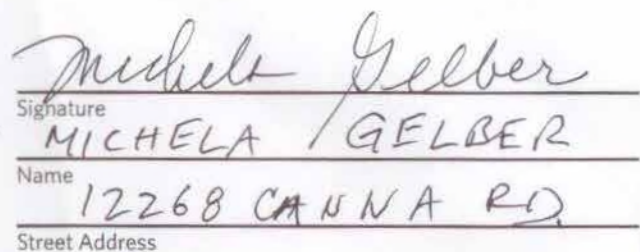 Michela Gelber
Signature
MICHELA GELBER
Name
12268 CANNA RD
Street Address